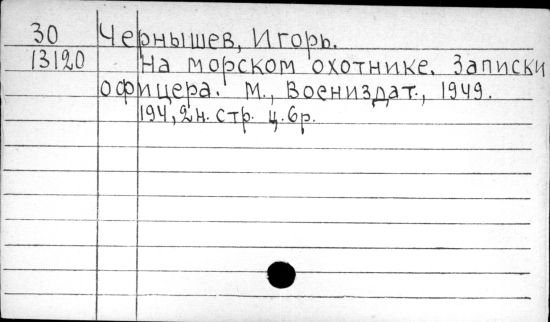 30 Чернышев, Игорь.
13120 На морском охотнике. Записки
офицера. М., Воениздат., 1949.
194, 2н. стр. ц. 6р.